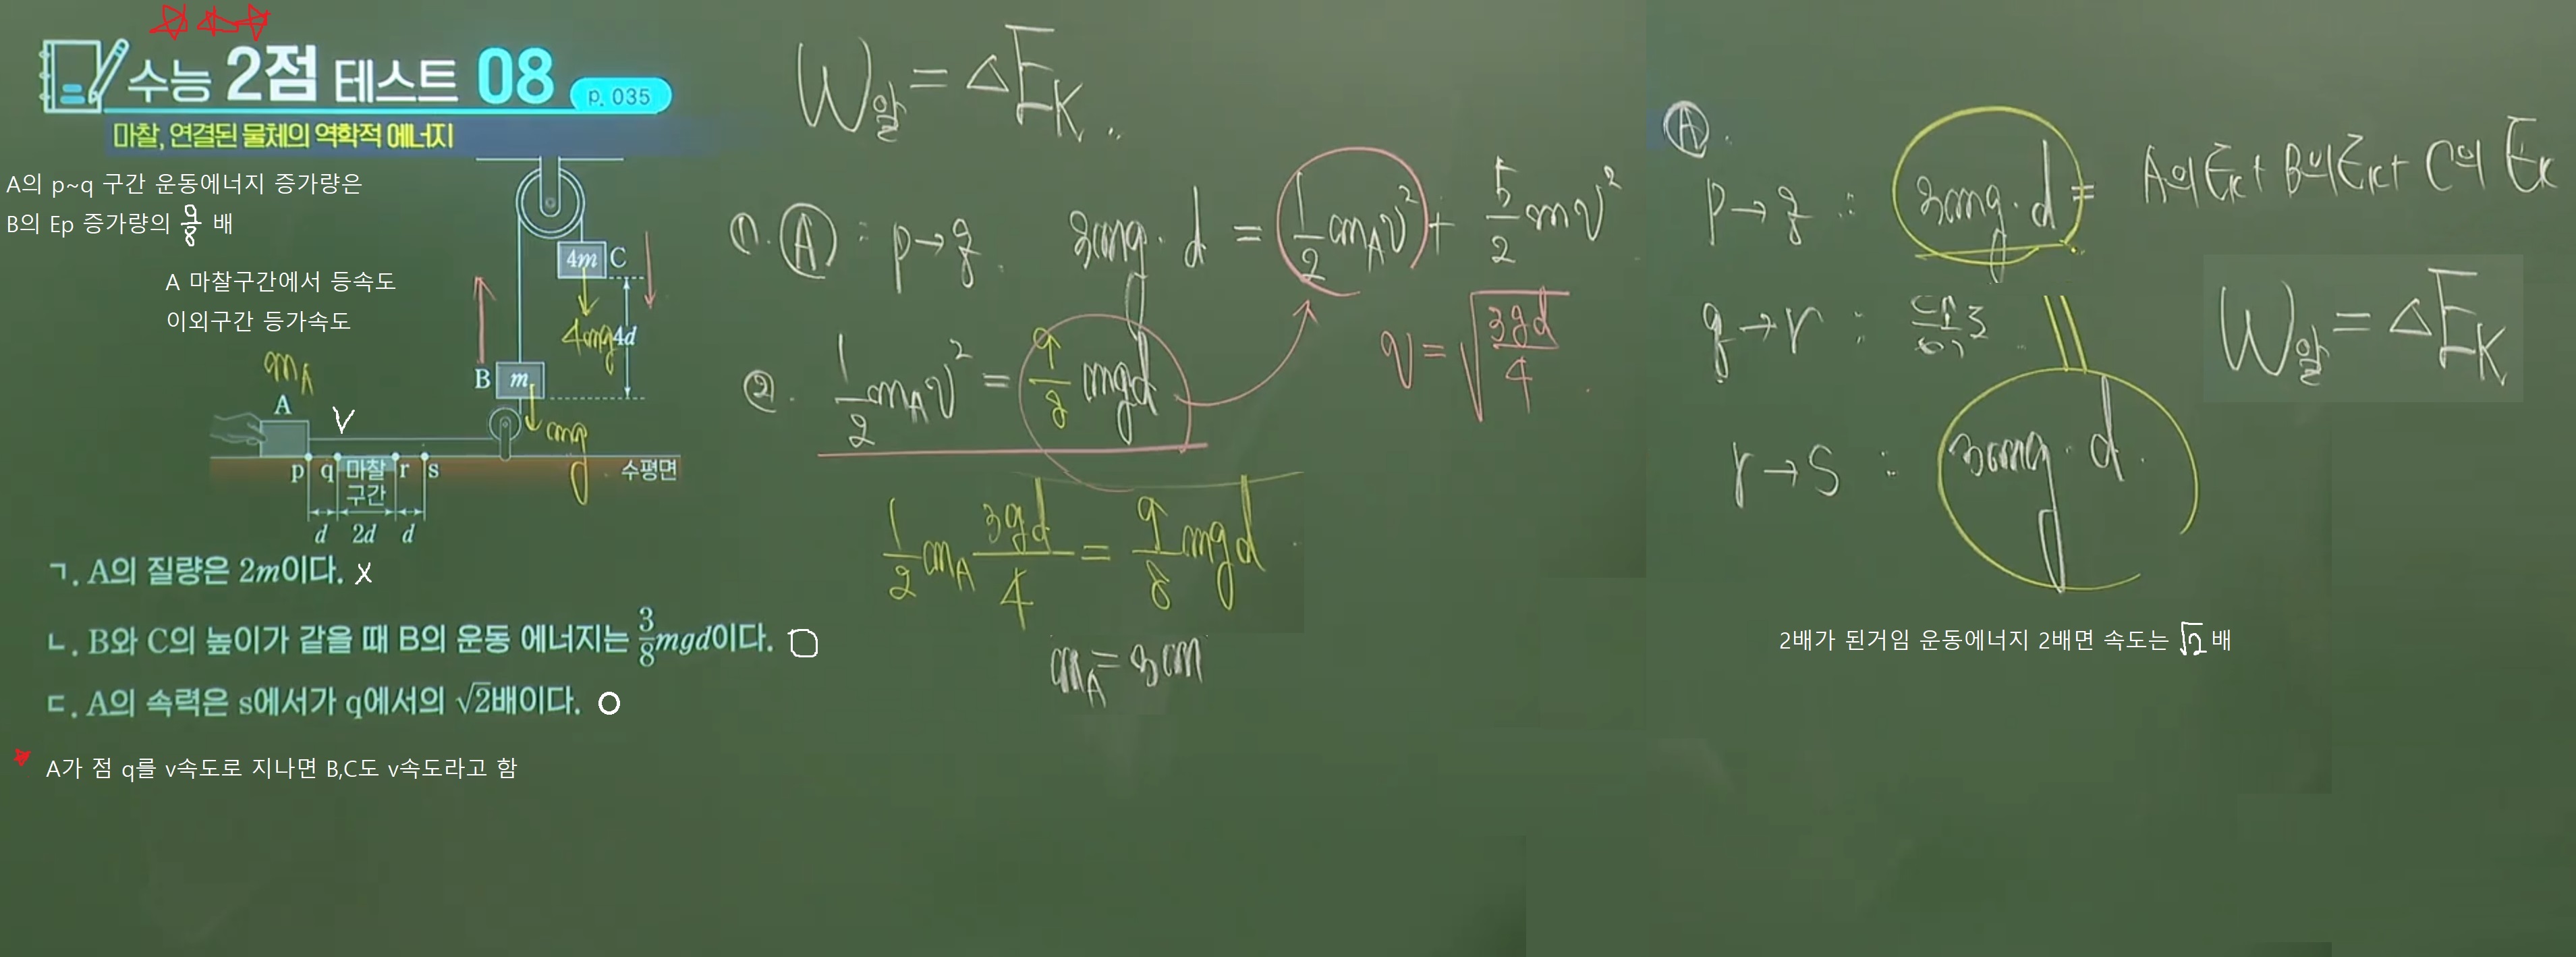 수능 2점 테스트 08 p. 035
마찰, 연결된 물체의 역학적 에너지
A의 p~q 구간 운동에너지 증가량은
B의 Ep 증가량의 9/8 배
A 마찰구간에서 등속도
이외구간 등가속도
4m C
4mg
4d
B m
mg
m_A
A
V
p q 마찰 구간 r s 수평면
d 2d d
ㄱ. A의 질량은 2m이다. X
ㄴ. B와 C의 높이가 같을 때 B의 운동 에너지는 3/8 mgd이다. O
ㄷ. A의 속력은 s에서가 q에서의 √2배이다. O
A가 점 q를 v속도로 지나면 B,C도 v속도라고 함
W알 = ΔE_K
1. A : p→q. 3mg·d = 1/2 m_A v² + 5/2 mv²
v = √(3gd/4)
2. 1/2 m_A v² = 9/8 mgd
1/2 m_A 3gd/4 = 9/8 mgd
m_A = 3m
A
p→q : 3mg·d = A의 E_K + B의 E_K + C의 E_K
q→r :
W알 = ΔE_K
r→s : 3mg·d
2배가 된거임 운동에너지 2배면 속도는 √2 배